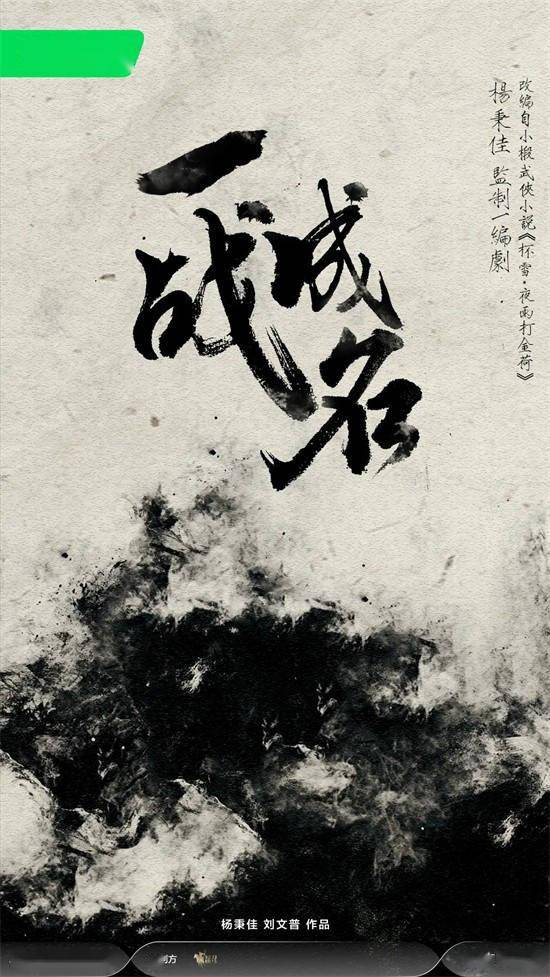 改编自小椴武侠小說《杯雪·夜雨打金荷》
楊秉佳 監制一編劇
一战成名
杨秉佳 刘文普 作品
制方